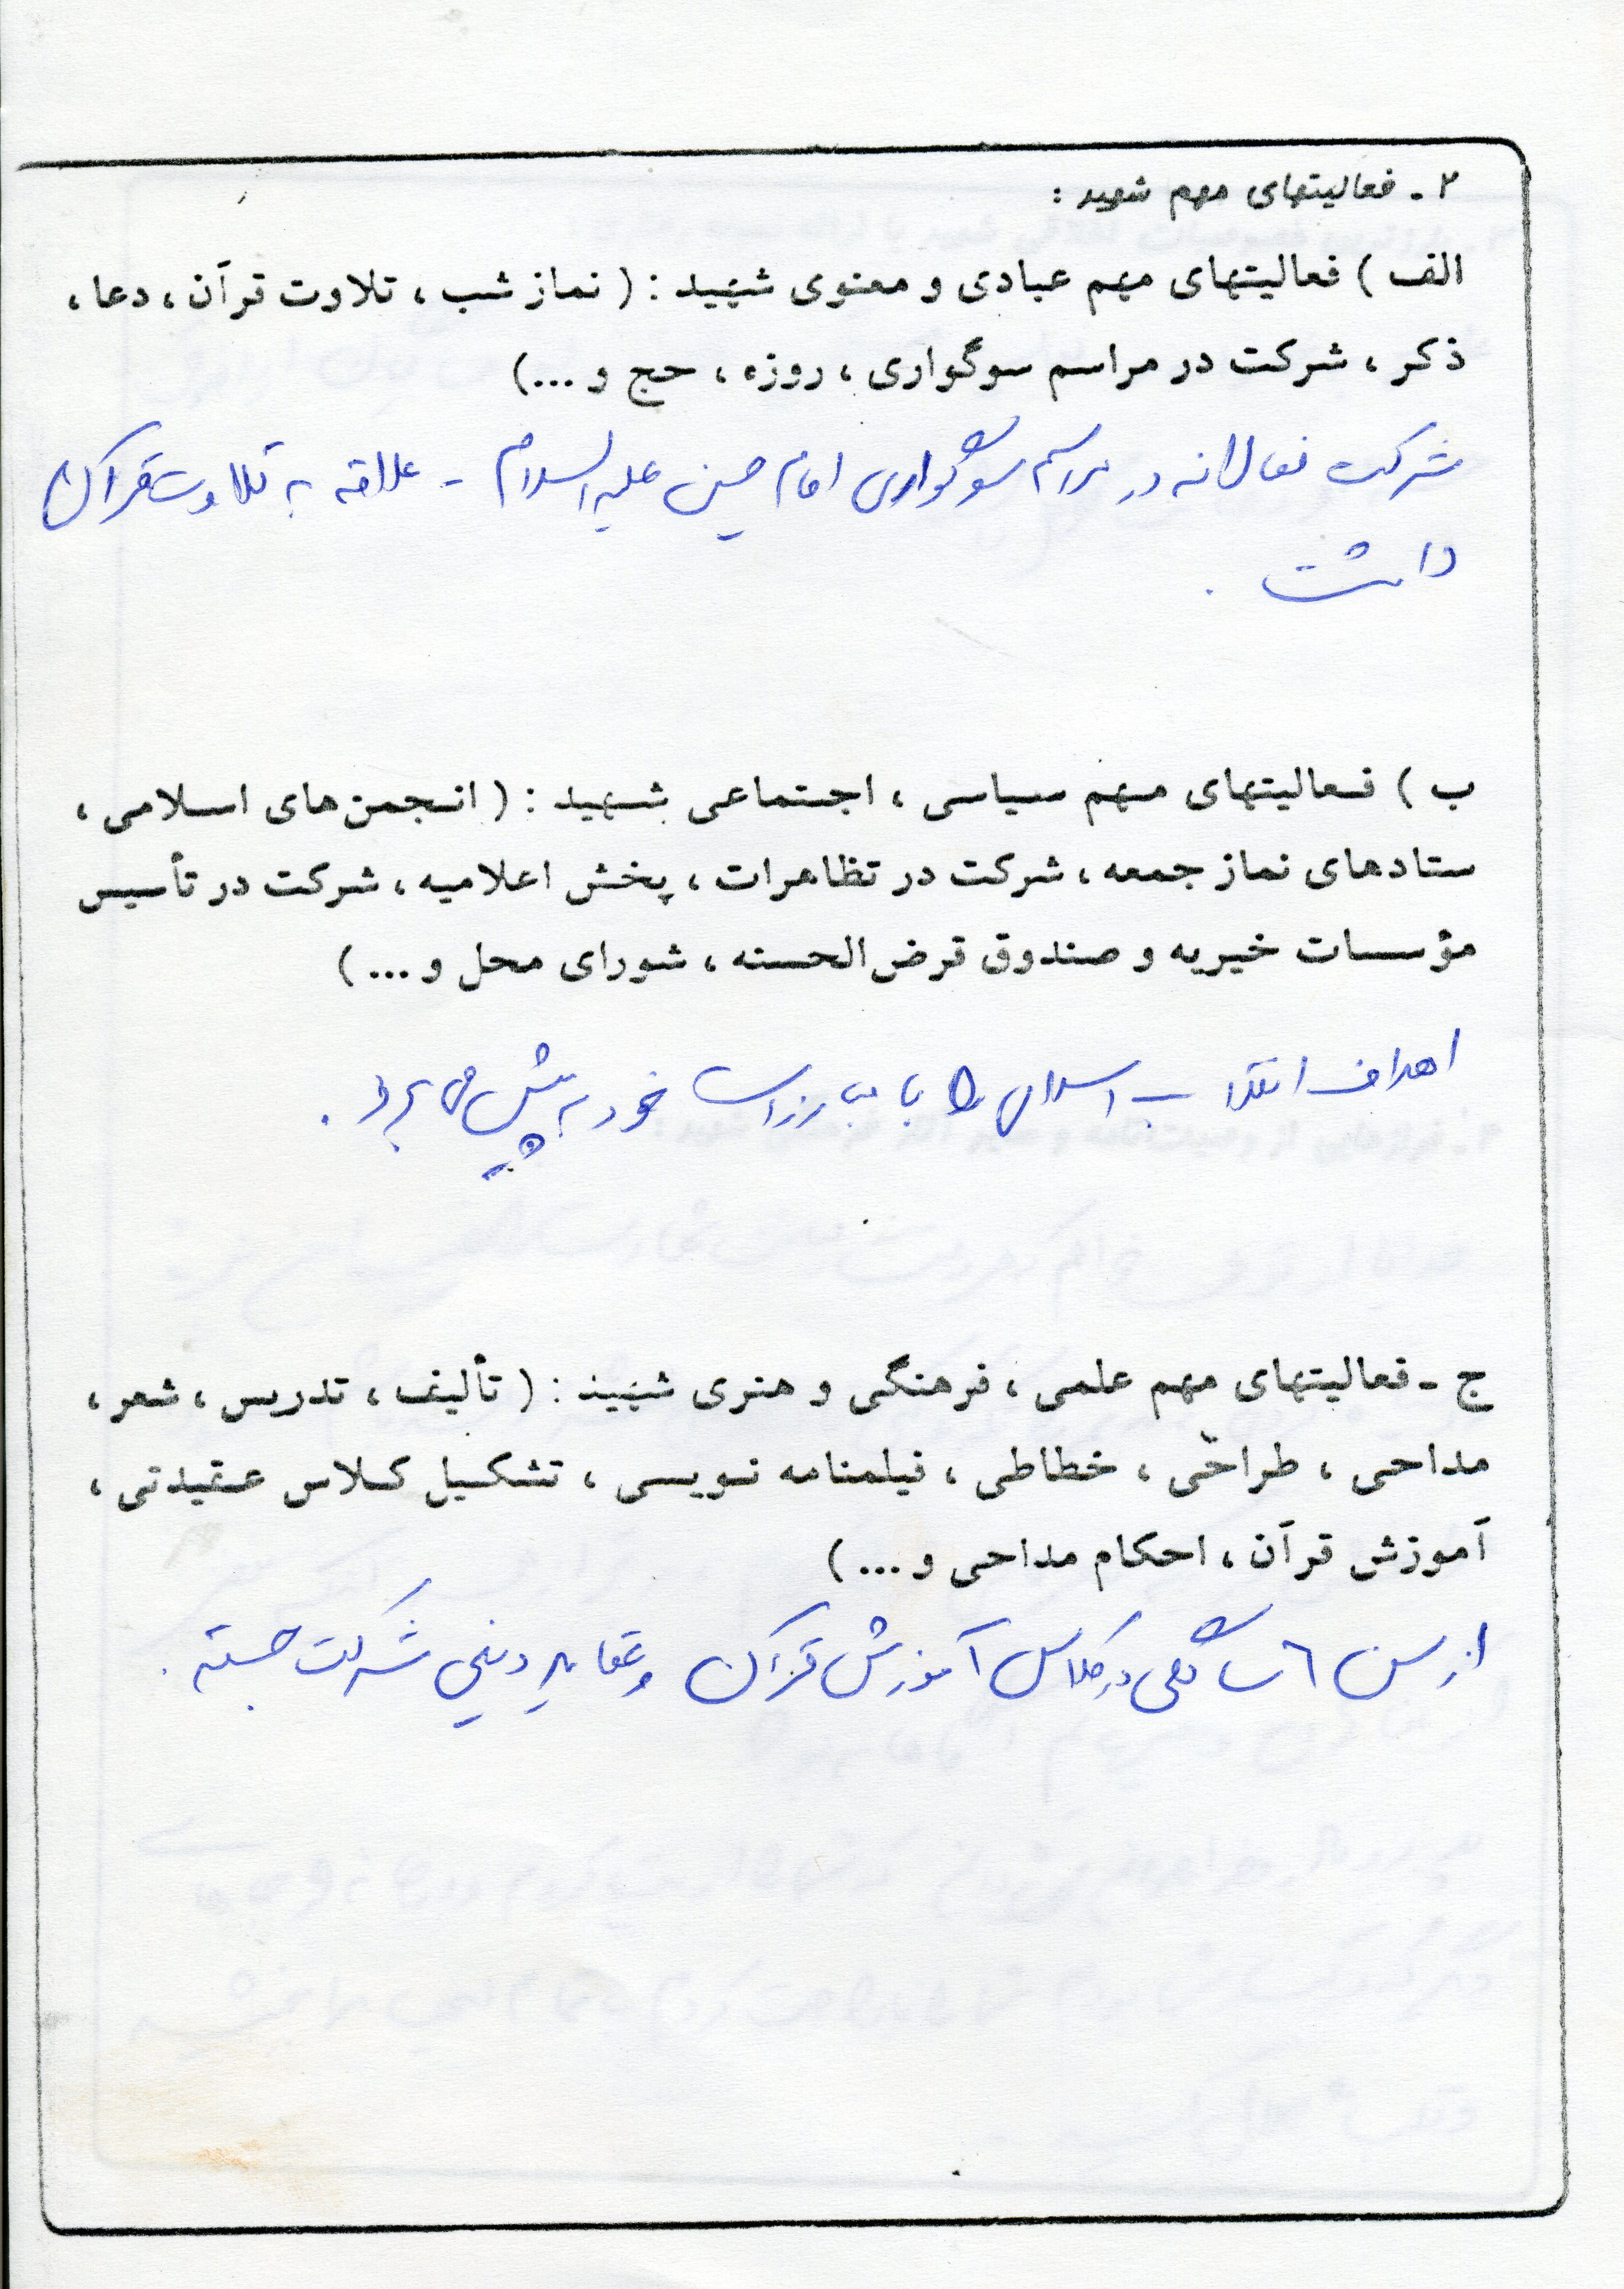 ۲ - فعالیتهای مهم شهید :
الف ) فعالیتهای مهم عبادی و معنوی شهید : ( نماز شب ، تلاوت قرآن ، دعا ،
ذکر ، شرکت در مراسم سوگواری ، روزه ، حج و ...)
شرکت فعالانه در مراسم سوگواری امام حسین علیه السلام - علاقه به تلاوت قرآن
داشت .
ب ) فعالیتهای مهم سیاسی ، اجتماعی شهید : ( انجمن‌های اسلامی ،
ستادهای نماز جمعه ، شرکت در تظاهرات ، پخش اعلامیه ، شرکت در تأسیس
مؤسسات خیریه و صندوق قرض الحسنه ، شورای محل و ... )
اهداف انقلاب اسلامی را با مبارزات خود به پیش می برد .
ج - فعالیتهای مهم علمی ، فرهنگی و هنری شهید : ( تألیف ، تدریس ، شعر ،
مداحی ، طراحی ، خطاطی ، فیلمنامه نویسی ، تشکیل کلاس عقیدتی ،
آموزش قرآن ، احکام مداحی و ... )
از سن ٦ سالگی در کلاس آموزش قرآن و عقاید دینی شرکت جسته .